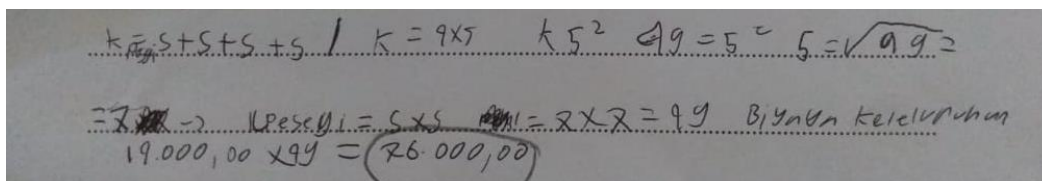 K = s + s + s + s / K = 4x5 k 5² 49 = 5² 5 = √49 =
= 7 -> Lpesegi = 5x5 = 7x7 = 49 Biyaya keseluruhan
19.000,00 x 49 = 76.000,00